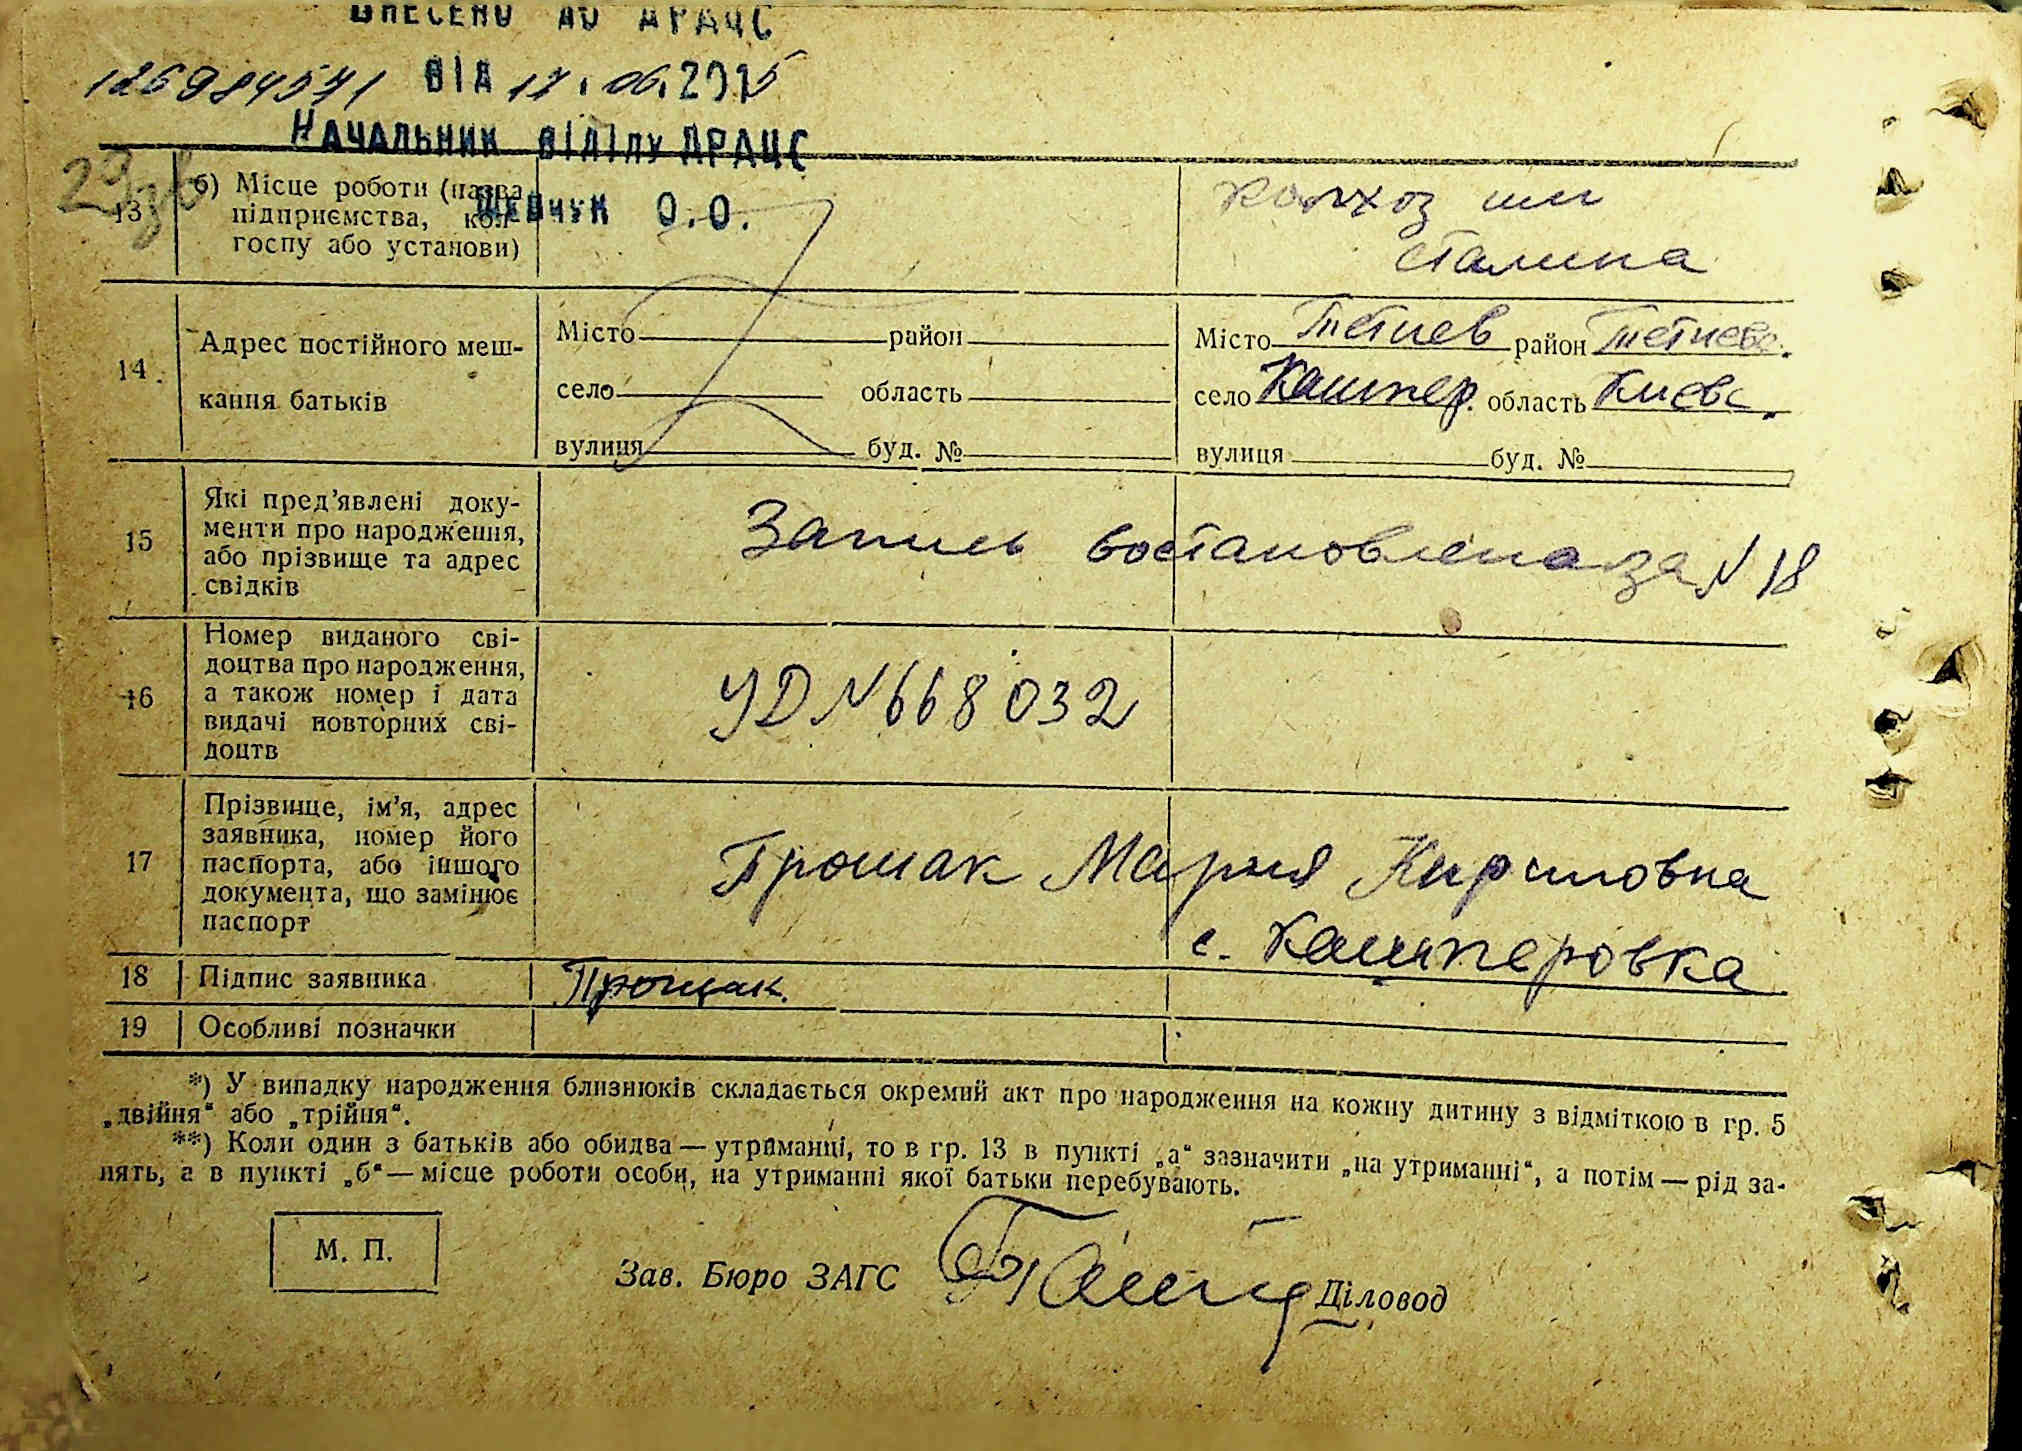 ВНЕСЕНО ДО ДРАЦС
126984571 ВІД 17.06.2015
НАЧАЛЬНИК ВІДІЛУ ДРАЦС
ШЕВЧУК О.О.
13 б) Місце роботи (назва підприємства, кол-
госпу або установи)
колхоз им
Сталина
14 Адрес постійного меш-
кання батьків
Місто район
село область
вулиця буд. №
Місто Тетиев район Тетиевс.
село Кашпер. область Киевс.
вулиця буд. №
15 Які пред'явлені доку-
менти про народження,
або прізвище та адрес
свідків
Запись востановлена за N 18
16 Номер виданого сві-
доцтва про народження,
а також номер і дата
видачі повторних сві-
доцтв
УД N 668032
17 Прізвище, ім'я, адрес
заявника, номер його
паспорта, або іншого
документа, що замінює
паспорт
Прошак Мария Кириловна
с. Кашперовка
18 Підпис заявника Прощак.
19 Особливі позначки
*) У випадку народження близнюків складається окремий акт про народження на кожну дитину з відміткою в гр. 5
„двійня“ або „трійня“.
**) Коли один з батьків або обидва — утриманці, то в гр. 13 в пункті „а“ зазначити „на утриманні“, а потім — рід за-
нять, а в пункті „б“ — місце роботи особи, на утриманні якої батьки перебувають.
М. П.
Зав. Бюро ЗАГС Діловод